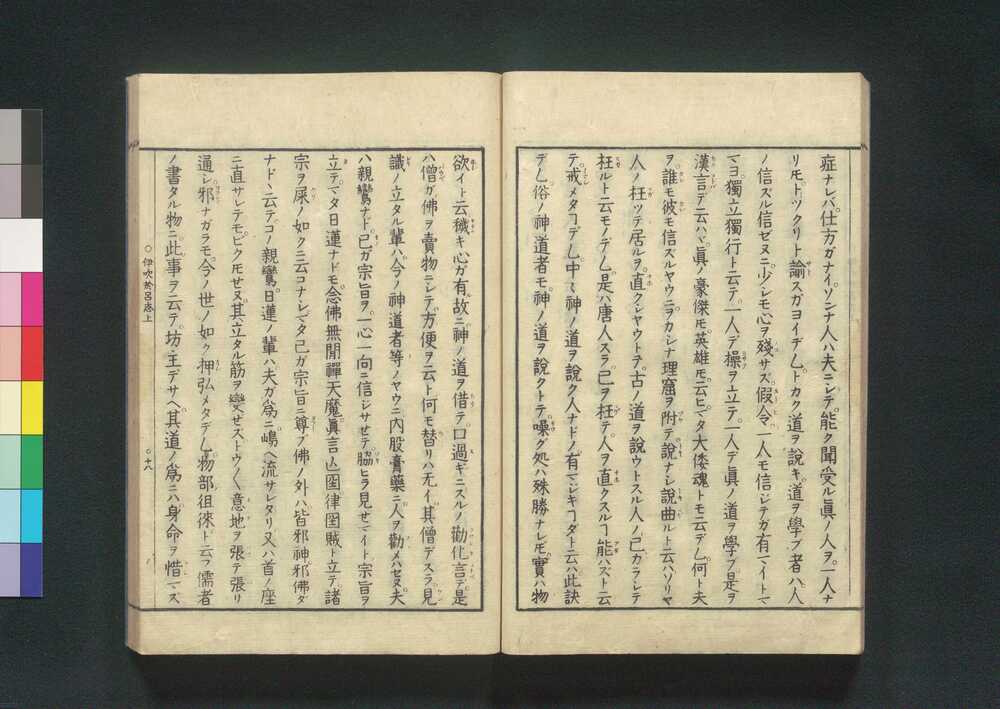 症ナレバ仕方ガナイソンナ人ハ夫ニシテ能ク聞受ル眞ノ人ヲ一人ナ
リ𪜈トツクリト諭スガヨイヂヤトカク道ヲ說キ道ヲ學ブ者ハ人
ノ信スル信ゼヌニ少シモ心ヲ殘サズ假令一人モ信ジテガ有マイトマ
マヨ獨立獨行ト云テ一人デ操ヲ立テ一人デ眞ノ道ヲ學ブ是ヲ
漢言デ云ハヾ眞ノ豪傑𪜈英雄𪜈云ヒマタ大倭魂トモ云デム何ト夫
ヲ誰モ彼モ信スルヤウニヲカシナ理窟ヲ附テ說ナシ說曲ルト云ハソリヤ
人ノ枉ツテ居ルヲ直クシヤウトテ古ノ道ヲ說ウトスル人ノ己カラシテ
枉ルト云モノデム是ハ唐人スラ己ヲ枉テ人ヲ直クスルヿ能ハズト云
テ戒メタヿデム中々神ノ道ヲ說ク人ナドノ有マジキヿダト云ハ此訣
デム俗ノ神道者モ神ノ道ヲ說クトテ噪グ処ハ殊勝ナレ𪜈實ハ物
欲イト云穢キ心ガ有故ニ神ノ道ヲ借テ口過ギニスルノ勸化言デ是
ハ僧ガ佛ヲ賣物ニシテ方便ヲ云ト何モ替リハ无イ其僧デスラ見
識ノ立タル輩ハ今ノ神道者等ノヤウニ内股膏藥ニ人ヲ勸メハセヌ夫
ハ親鸞ナド己ガ宗旨ヲ一心一向ニ信ジサセテ脇ヒラ見セマイト宗旨ヲ
立テマタ日蓮ナドモ念佛無間禪天魔眞言亡國律國賊ト立テ諸
宗ヲ屎ノ如クニ云コナシマタ己ガ宗旨ニ尊ブ佛ノ外ハ皆邪神邪佛ダ
ナドヽ云テコノ親鸞日蓮ノ輩ハ夫ガ爲ニ嶋ヘ流サレタリ又ハ首ノ座
ニ直サレテモビク𪜈セヌ其立タル筋ヲ變セズトウ〳〵意地ヲ張テ張リ
通シ邪ナガラモ今ノ世ノ如ク押弘メタデム物部徂徠ト云フ儒者
ノ書タル物ニ此事ヲ云テ坊主デサヘ其道ノ爲ニハ身命ヲ惜マズ
○伊吹於呂志上
○十八